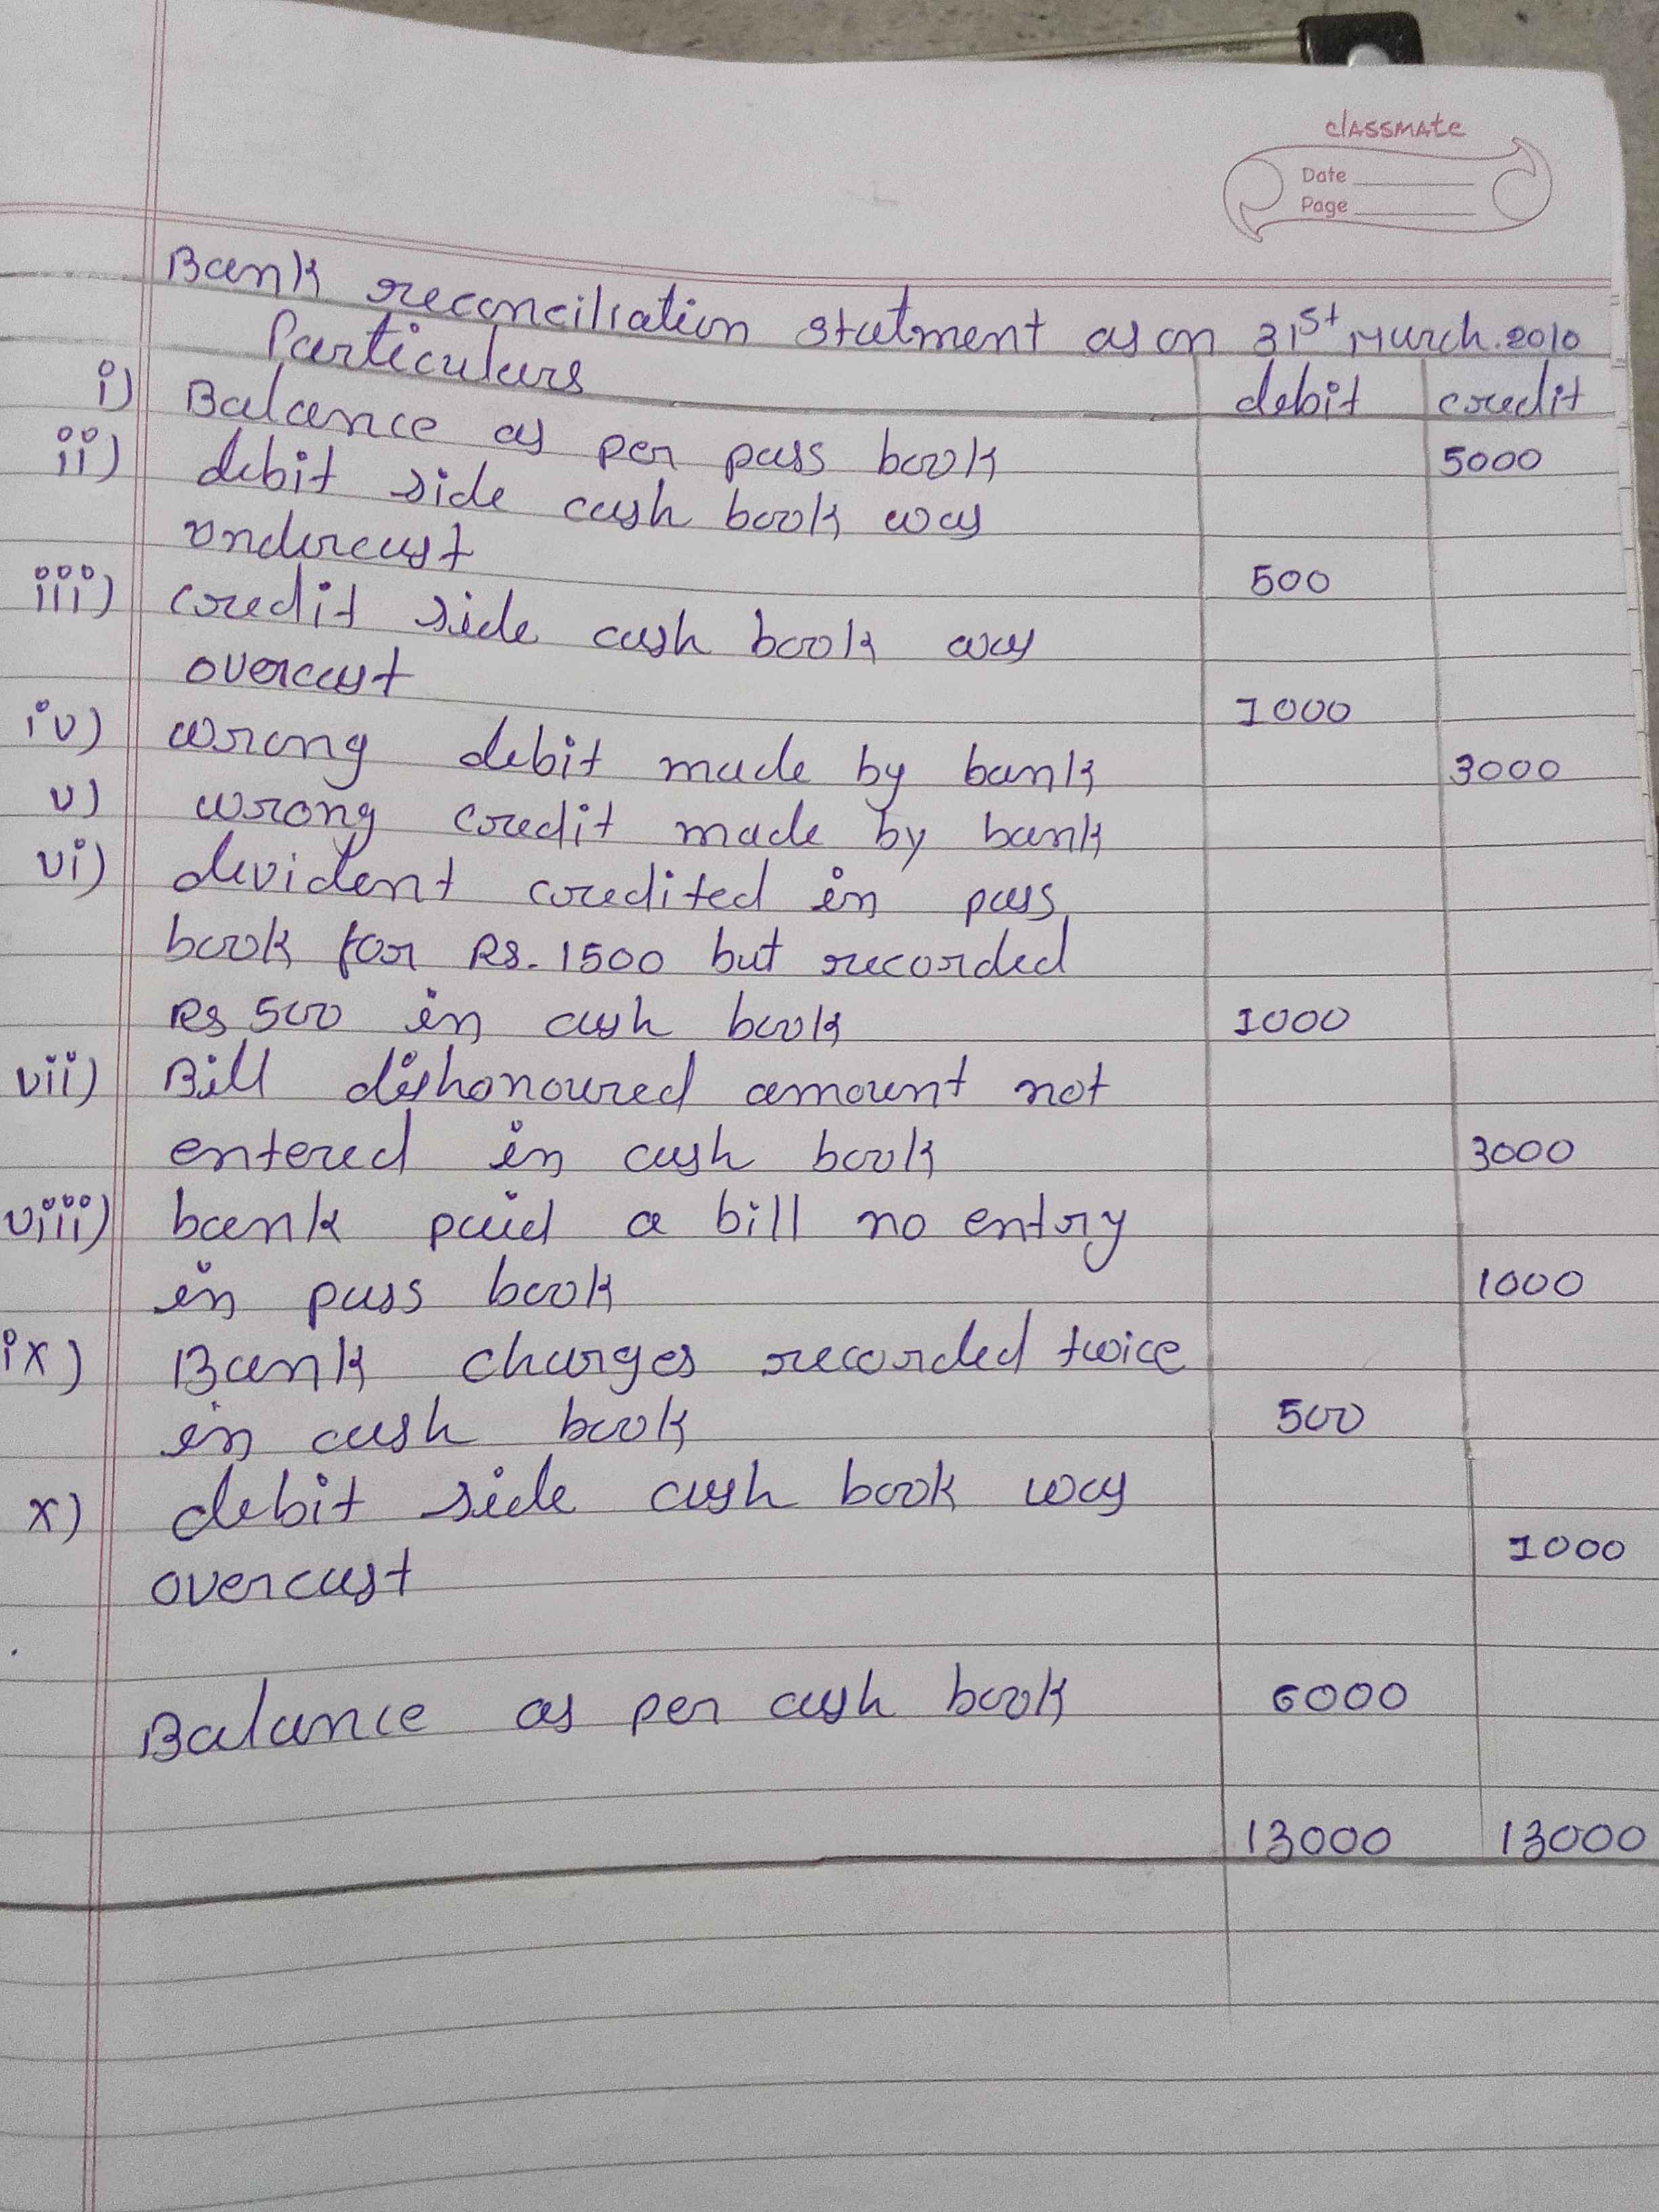 classmate
Date
Page
Bank reconciliation statment as on 31st March.2010
Particulars debit credit
i) Balance as per pass book 5000
ii) debit side cash book was
undercast 500
iii) credit side cash book was
overcast 1000
iv) wrong debit made by bank 3000
v) wrong credit made by bank
vi) devident credited in pass
book for Rs. 1500 but recorded
Rs 500 in cash book 1000
vii) Bill dishonoured amount not
entered in cash book 3000
viii) bank paid a bill no entry
in pass book 1000
ix) Bank charges recorded twice
in cash book 500
x) debit side cash book was
overcast 1000
Balance as per cash book 6000
13000 13000